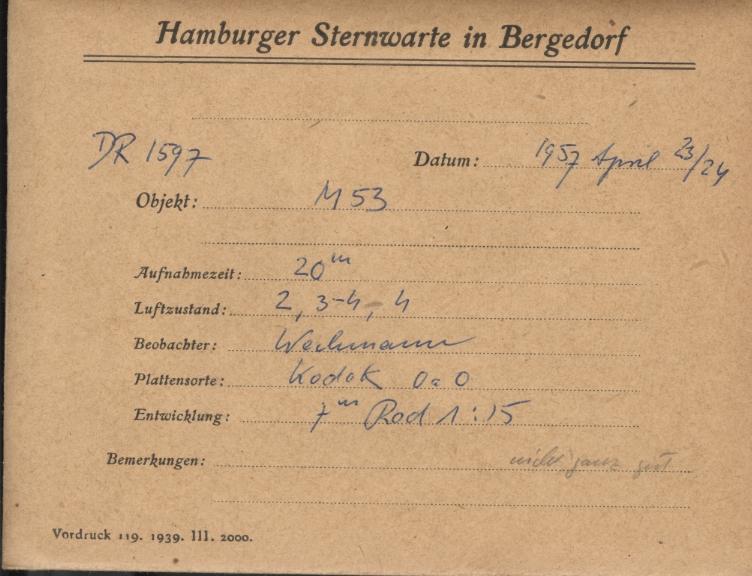 Hamburger Sternwarte in Bergedorf
DR 1597
Datum: 1957 April 23/24
Objekt: M 53
Aufnahmezeit: 20ᵐ
Luftzustand: 2, 3-4, 4
Beobachter: Wachmann
Plattensorte: Kodak OaO
Entwicklung: 7ᵐ Rod 1:15
Bemerkungen: nicht ganz gut
Vordruck 119. 1939. III. 2000.